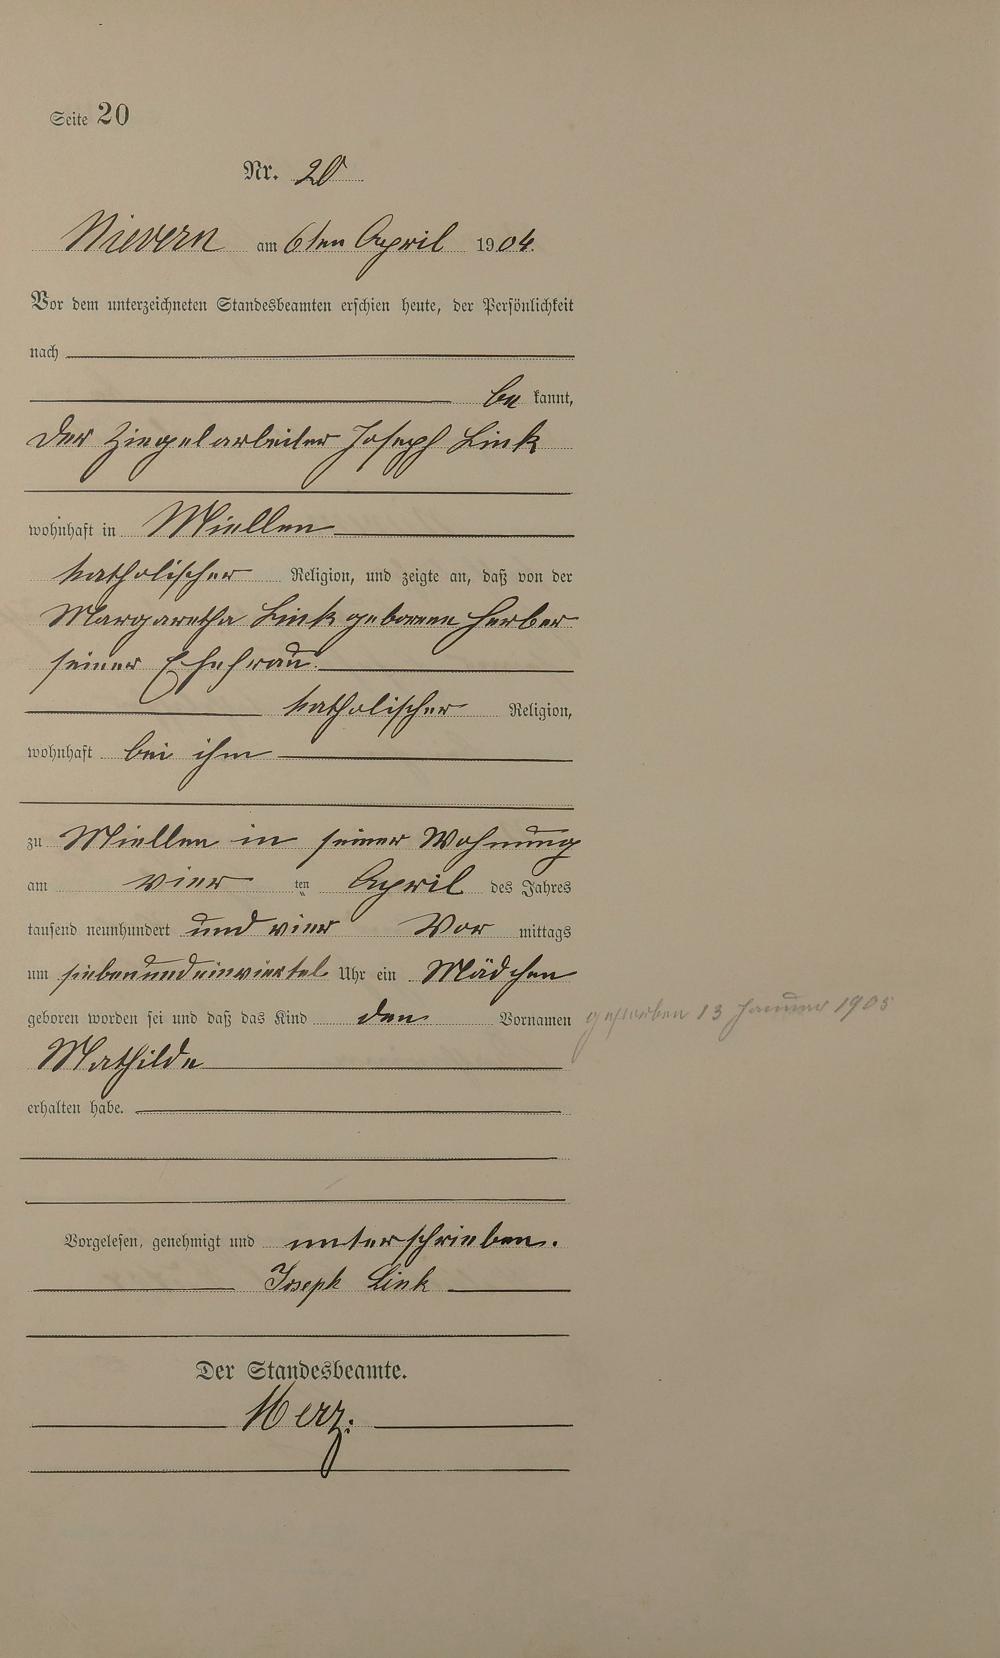 Seite 20
Nr. 20
Nievern am 6ten April 1904.
Vor dem unterzeichneten Standesbeamten erschien heute, der Persönlichkeit
nach
bekannt,
der Ziegelarbeiter Joseph Link
wohnhaft in Miellen
katholischer Religion, und zeigte an, daß von der
Margaretha Link geborene Herber
seiner Ehefrau.
katholischer Religion,
wohnhaft bei ihm
zu Miellen in seiner Wohnung
am vier ten April des Jahres
tausend neunhundert und vier Vor mittags
um siebenundeinviertel Uhr ein Mädchen
geboren worden sei und daß das Kind den Vornamen gestorben 13 Januar 1905
Mathilde
erhalten habe.
Vorgelesen, genehmigt und unterschrieben.
Joseph Link
Der Standesbeamte.
Merz.